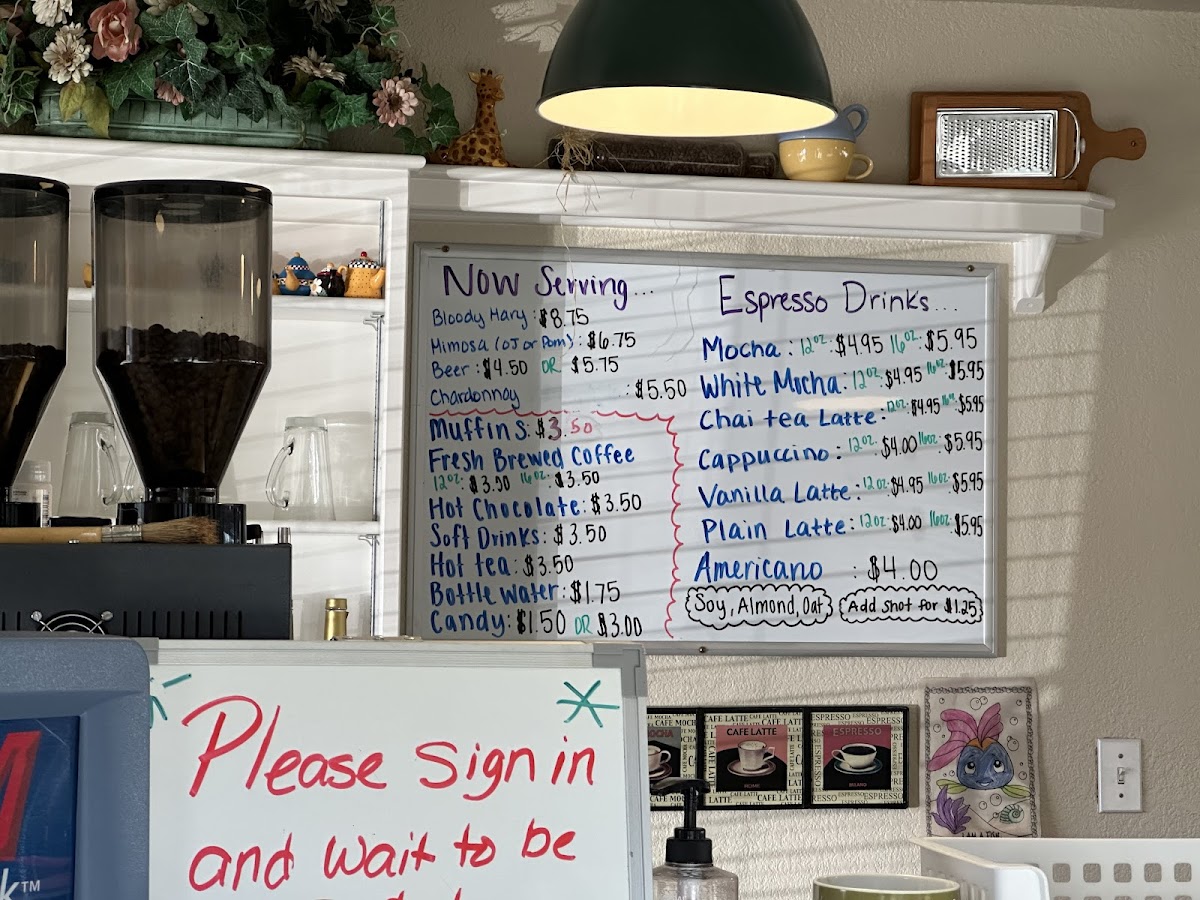 Now Serving...
Bloody Mary: $8.75
Mimosa (OJ or Pom): $6.75
Beer: $4.50 OR $5.75
Chardonnay : $5.50
Muffins: $3.50
Fresh Brewed Coffee
12oz: $3.00 16oz: $3.50
Hot Chocolate: $3.50
Soft Drinks: $3.50
Hot tea: $3.50
Bottle water: $1.75
Candy: $1.50 OR $3.00
Espresso Drinks...
Mocha: 12oz: $4.95 16oz: $5.95
White Mocha: 12oz: $4.95 16oz: $5.95
Chai tea Latte: 12oz: $4.95 16oz: $5.95
Cappuccino: 12oz: $4.00 16oz: $5.95
Vanilla Latte: 12oz: $4.95 16oz: $5.95
Plain Latte: 12oz: $4.00 16oz: $5.95
Americano : $4.00
Soy, Almond, Oat
Add shot for $1.25
Please sign in
and wait to be
CAFE LATTE
ESPRESSO
MILANO
I AM A FISH